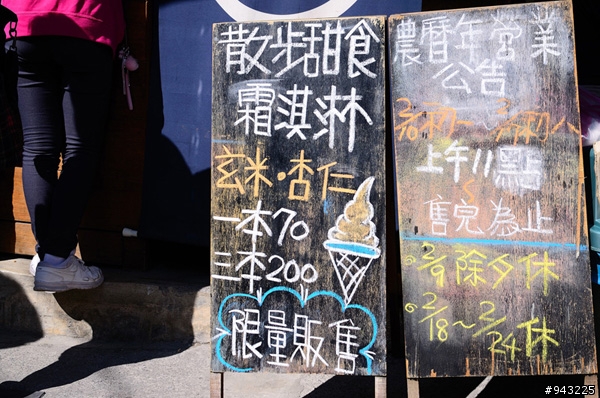 散步甜食
霜淇淋
玄米・杏仁
一本70
三本200
限量販售
農曆年營業
公告
2/10初一~2/17初八
上午11點
售完為止
2/9除夕休
2/18~2/24休
#943225